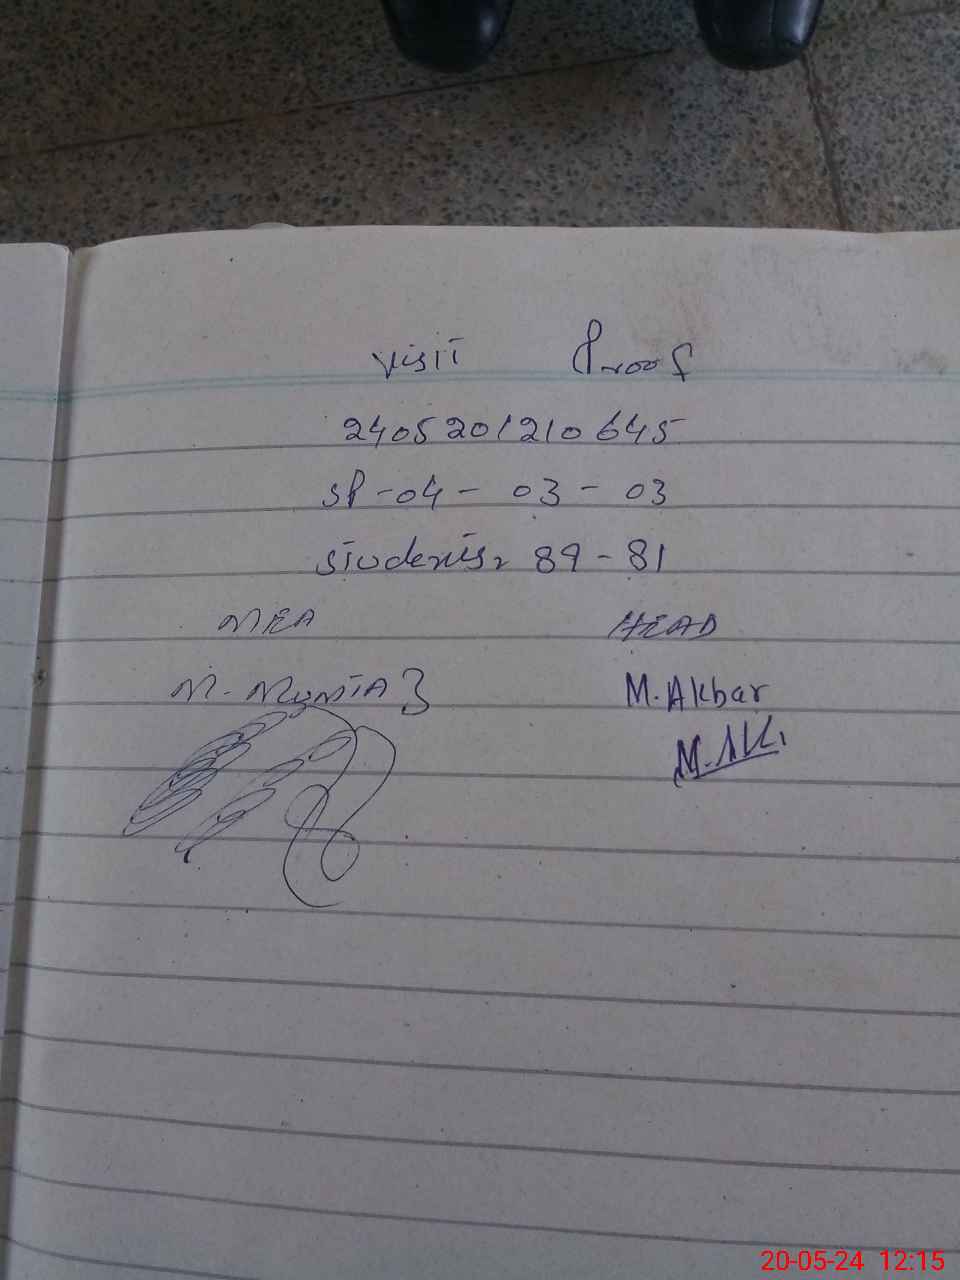 Visit Proof
2405201210645
SP-04-03-03
Students, 89-81
MEA HEAD
M. Mumtaz M. Akbar
M. AK.
20-05-24 12:15